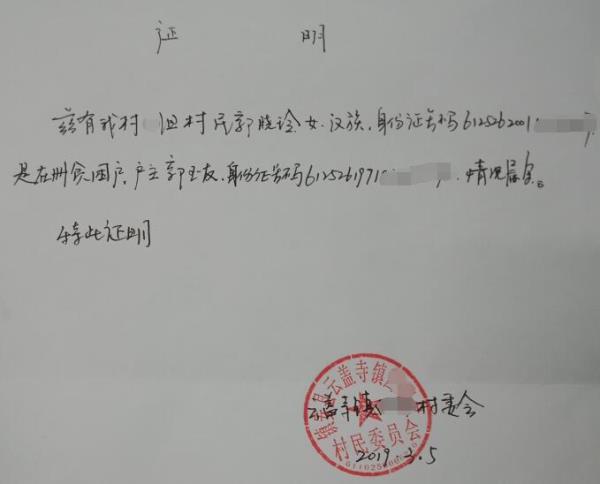 证 明
兹有我村 组村民郭晓玲,女,汉族,身份证号码6125262001
是在册贫困户,户主郭玉友,身份证号码6125261971 ,情况属实。
特此证明
云盖寺镇 村委会
2019.3.5
县云盖寺镇
村民委员会